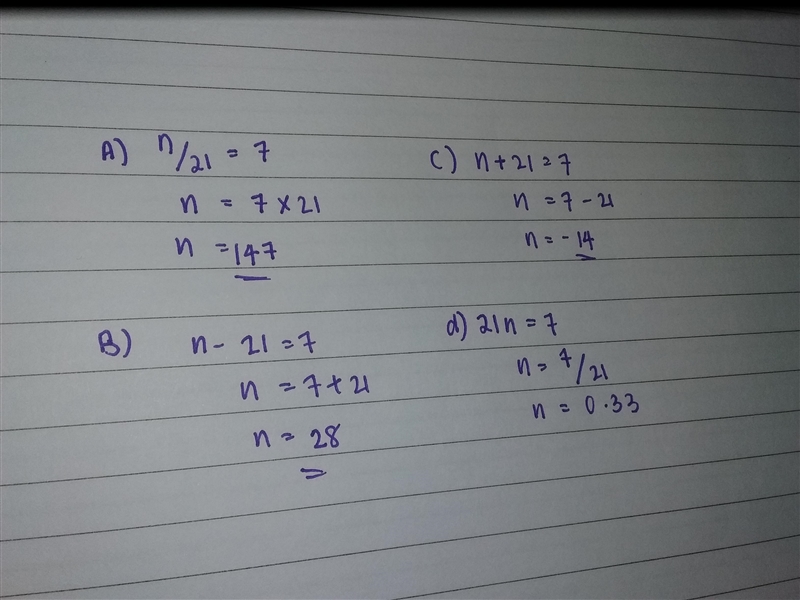 A) n/21 = 7
n = 7 x 21
n = 147
B) n - 21 = 7
n = 7 + 21
n = 28
C) n + 21 = 7
n = 7 - 21
n = - 14
d) 21n = 7
n = 7/21
n = 0.33